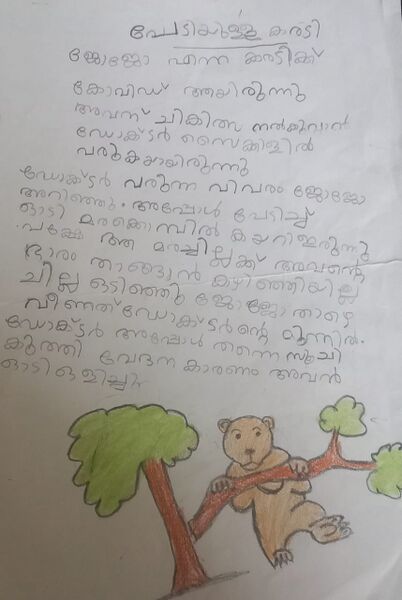 പേടിയുള്ള കരടി
ജോജോ എന്ന കരടിക്ക്
കോവിഡ് ആയിരുന്നു
അവന് ചികിത്സ നൽകുവാൻ
ഡോക്ടർ സൈക്കിളിൽ
വരുകയായിരുന്നു
ഡോക്ടർ വരുന്ന വിവരം ജോജോ
അറിഞ്ഞു. അപ്പോൾ പേടിച്ച്
ഓടി മരക്കൊമ്പിൽ കയറിഇരുന്നു
പക്ഷേ ആ മരച്ചില്ലക്ക് അവന്റെ
ഭാരം താങ്ങുവാൻ കഴിഞ്ഞിയില്ല
ചില്ല ഒടിഞ്ഞു ജോജോ താഴെ
വീണത് ഡോക്ടർന്റെ മുന്നിൽ.
ഡോക്ടർ അപ്പോൾ തന്നെ സൂചി
കുത്തി വേദന കാരണം അവൻ
ഓടി ഒളിച്ചു.